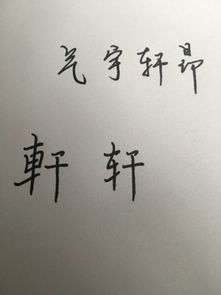 气宇轩昂
軒 轩